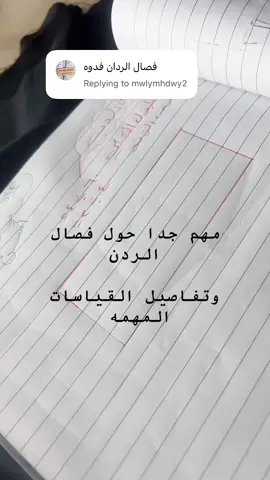 فصال الردان فدوه
Replying to mwlymhdwy2
مهم جدا حول فصال
الردن
وتفاصيل القياسات
المهمه